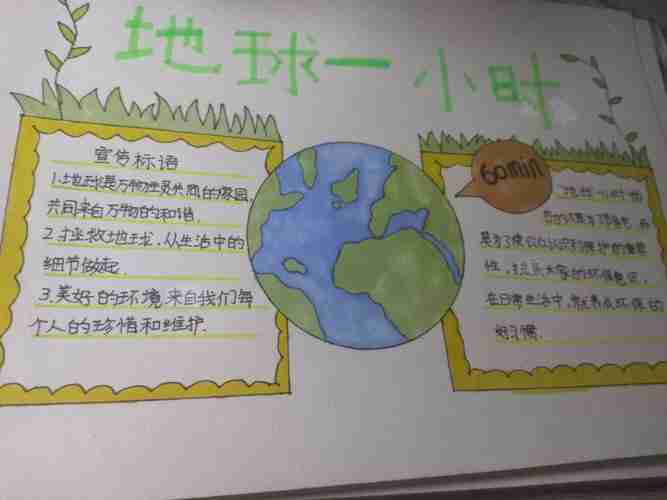 地球一小时
宣传标语
1.地球是万物生灵共同的家园,
共同来自万物的和谐.
2.拯救地球,从生活中的
细节做起.
3.美好的环境来自我们每
个人的珍惜和维护.
60min
地球一小时
是为了
性,
在日常生活中,环保的
好习惯.